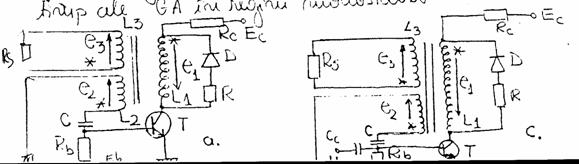 GA în regim
L3 Rc Ec L3 Rc Ec
Rs e3 e1 D Rs e3 e1 D
e2 R e2 R
C L2 L1 T Cc C L1 T
Rb a. Rb c.
Eb